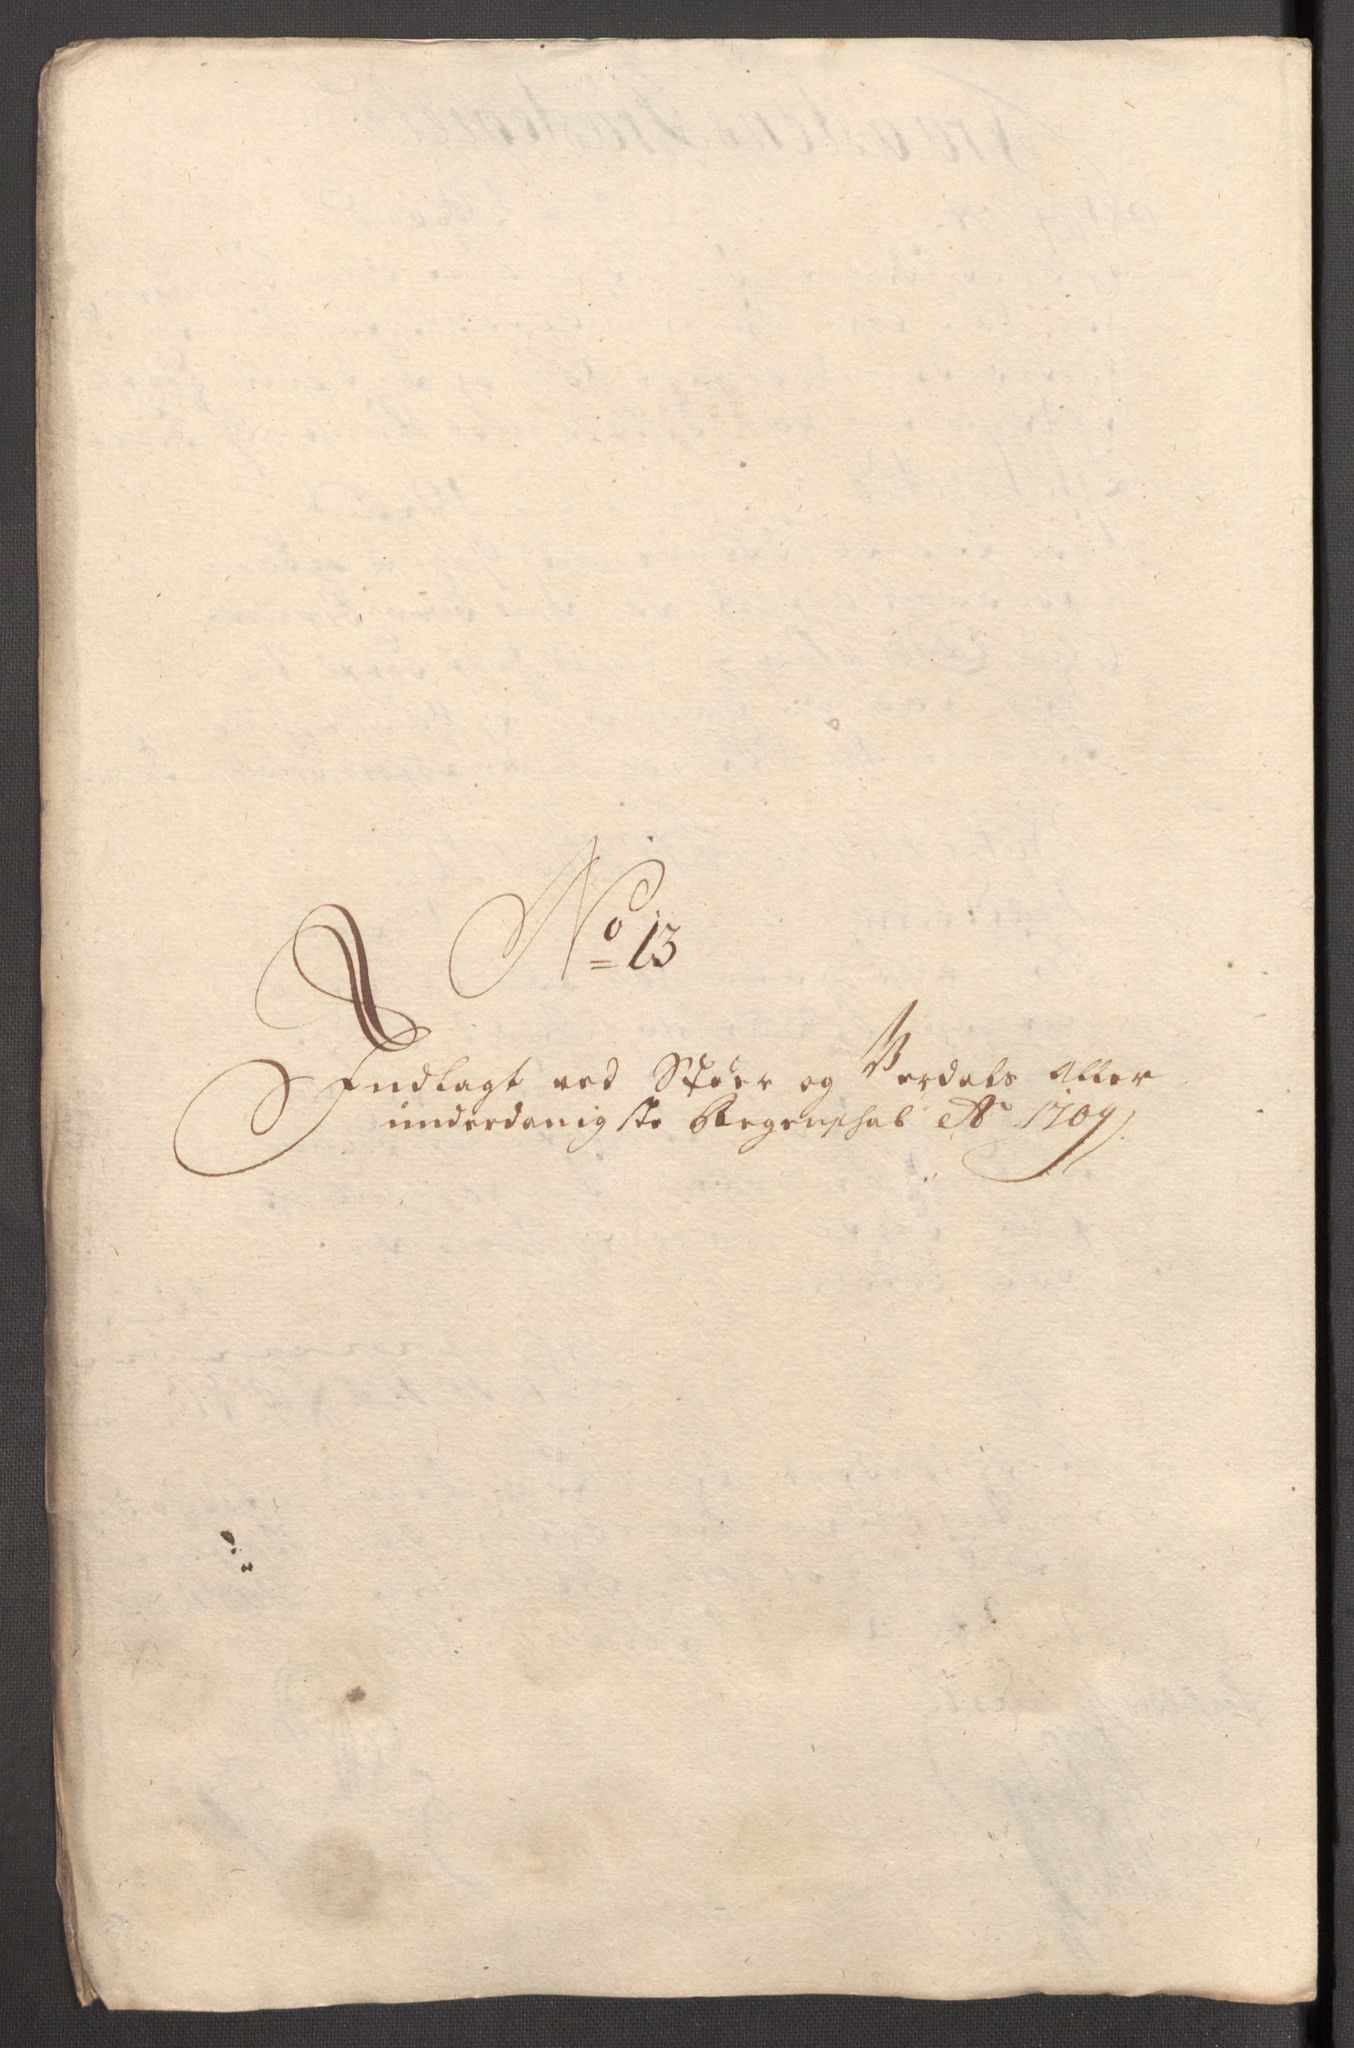 No 13
Indlagt ved Støer og Verdals Aller
underdanigste Regenschab Ao 1709